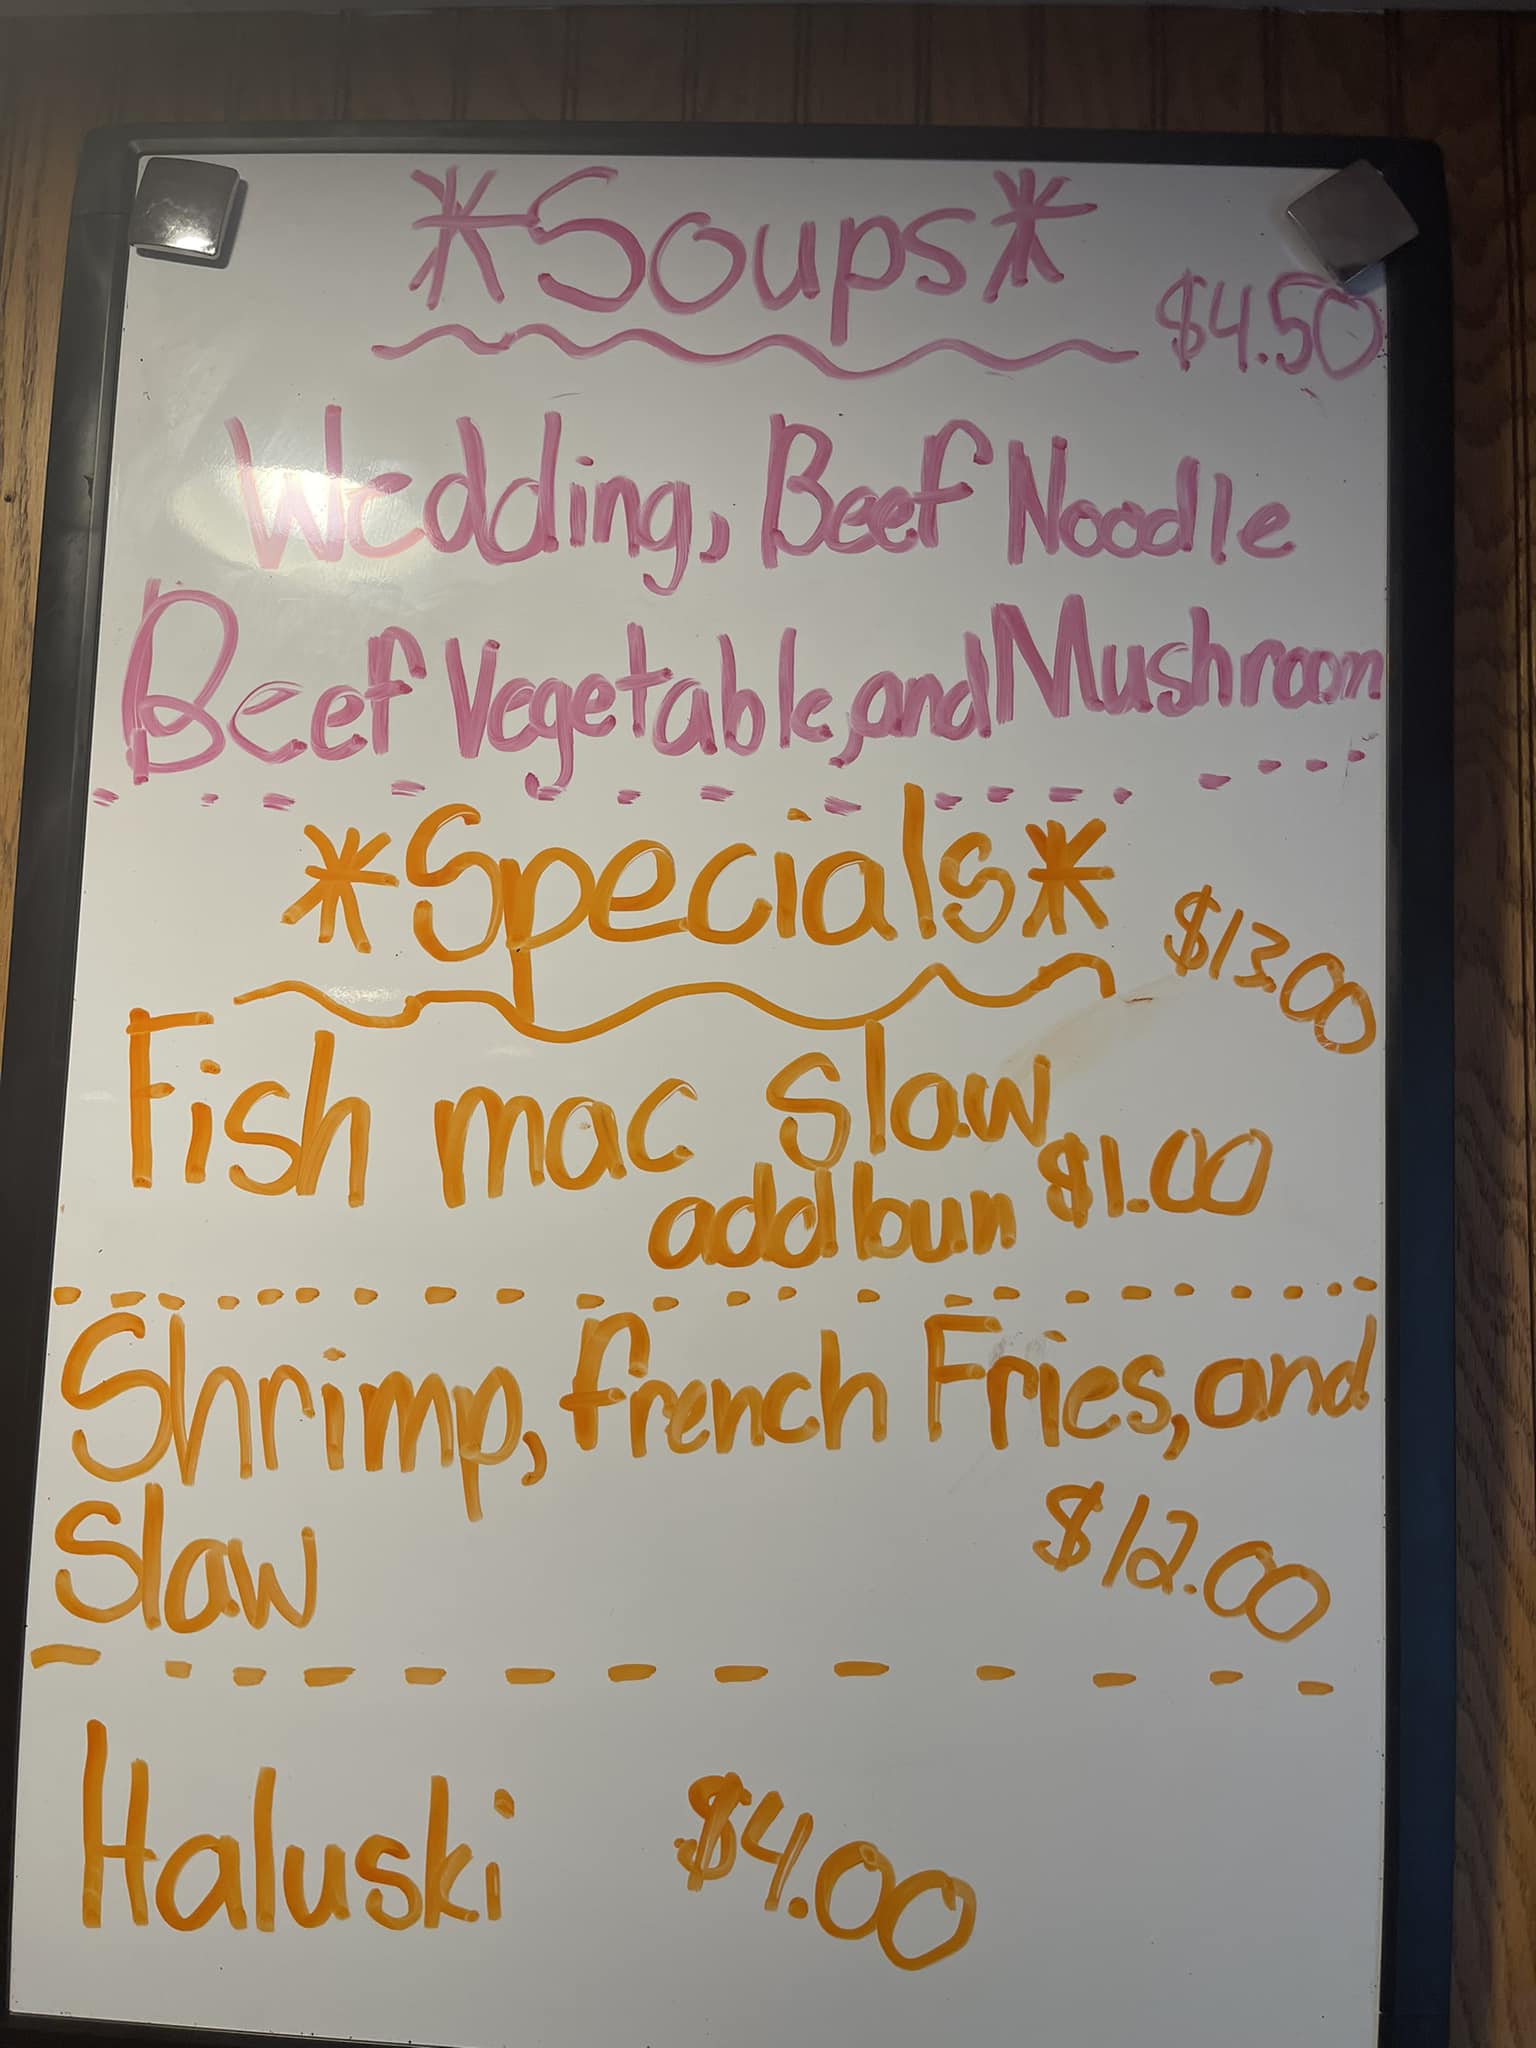 *Soups*
$4.50
Wedding, Beef Noodle
Beef Vegetable, and Mushroom
*Specials*
$13.00
Fish mac slaw
add bun $1.00
Shrimp, french Fries, and
Slaw $12.00
Haluski $4.00